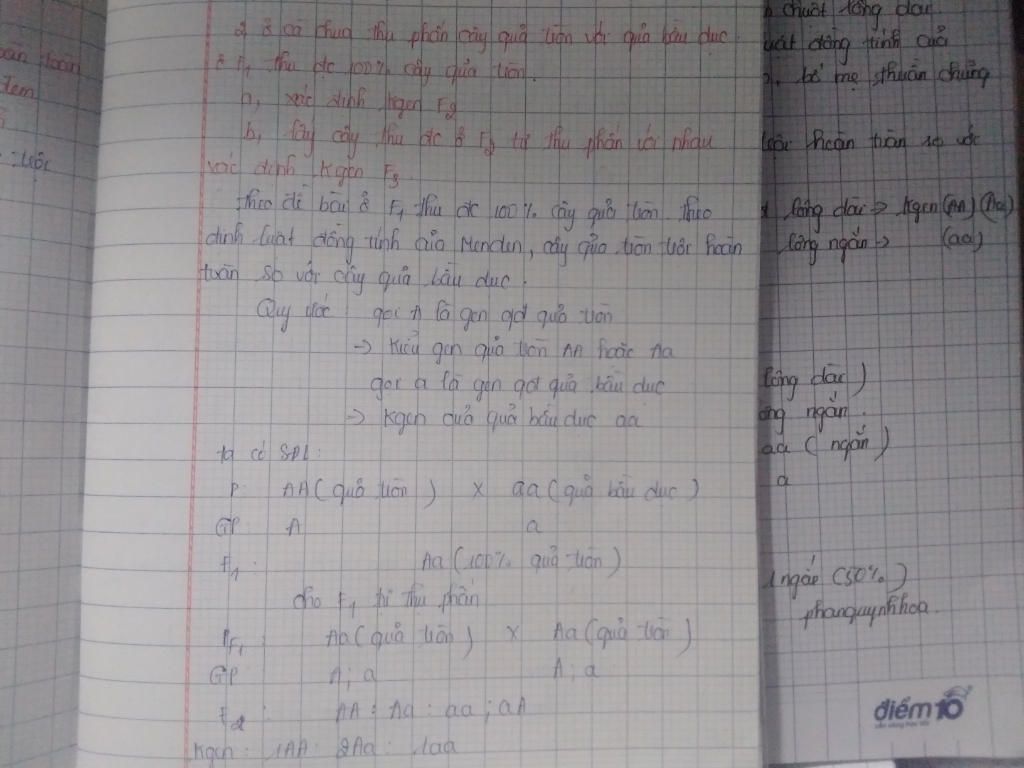 2, ở cà chua thụ phấn cây quả tròn với quả bầu dục
ở F1 thu đc 100% cây quả tròn.
a, xác định kgen F2
b, lấy cây thu đc ở F2 tự thụ phấn với nhau
xác định kgen F3
Theo đề bài ở F1 thu đc 100% cây quả tròn theo
định luật đồng tính của Menđen, cây quả tròn trội hoàn
toàn so với cây quả bầu dục.
Quy ước: gọi A là gen qđ quả tròn
→ kiểu gen quả tròn AA hoặc Aa
gọi a là gen qđ quả bầu dục
→ kgen quả quả bầu dục aa
ta có SĐL:
P: AA (quả tròn) x aa (quả bầu dục)
GP A a
F1: Aa (100% quả tròn)
cho F1 tự thụ phấn
PF1: Aa (quả tròn) x Aa (quả tròn)
GP A; a A; a
F2: AA: Aa: aa; aA
kgen: 1AA: 2Aa: 1aa
chuột lông dài
luật đồng tính của
bố mẹ thuần chủng
hoàn toàn so với
lông dài → kgen (AA) (Aa)
lông ngắn → (aa)
lông dài)
ngắn.
aa (ngắn)
a
ngắn (50%)
phanquynhhoa.
điểm 10